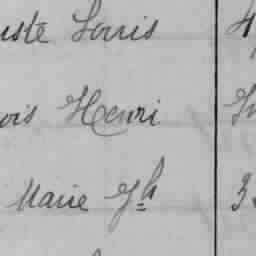 uste Louis 4
ois Henri
Marie Jh 3